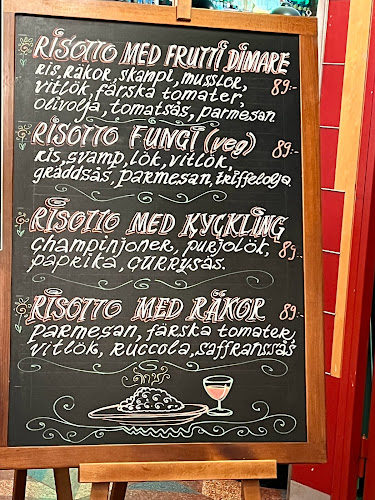 RISOTTO MED FRUTTI DIMARE
ris, Räkor, skampi, musslor, 89:-
vitlök, färska tomater,
olivolja, tomatsås, parmesan
RISOTTO FUNGI (veg)
Ris, svamp, lök, vitlök 89:-
gräddsås, parmesan, triffelolja.
RISOTTO MED KYCKLING
champinjoner, purjolök, 89:-
paprika, currysås.
RISOTTO MED RÄKOR 89:-
parmesan, färska tomater,
vitlök, Ruccola, saffranssås